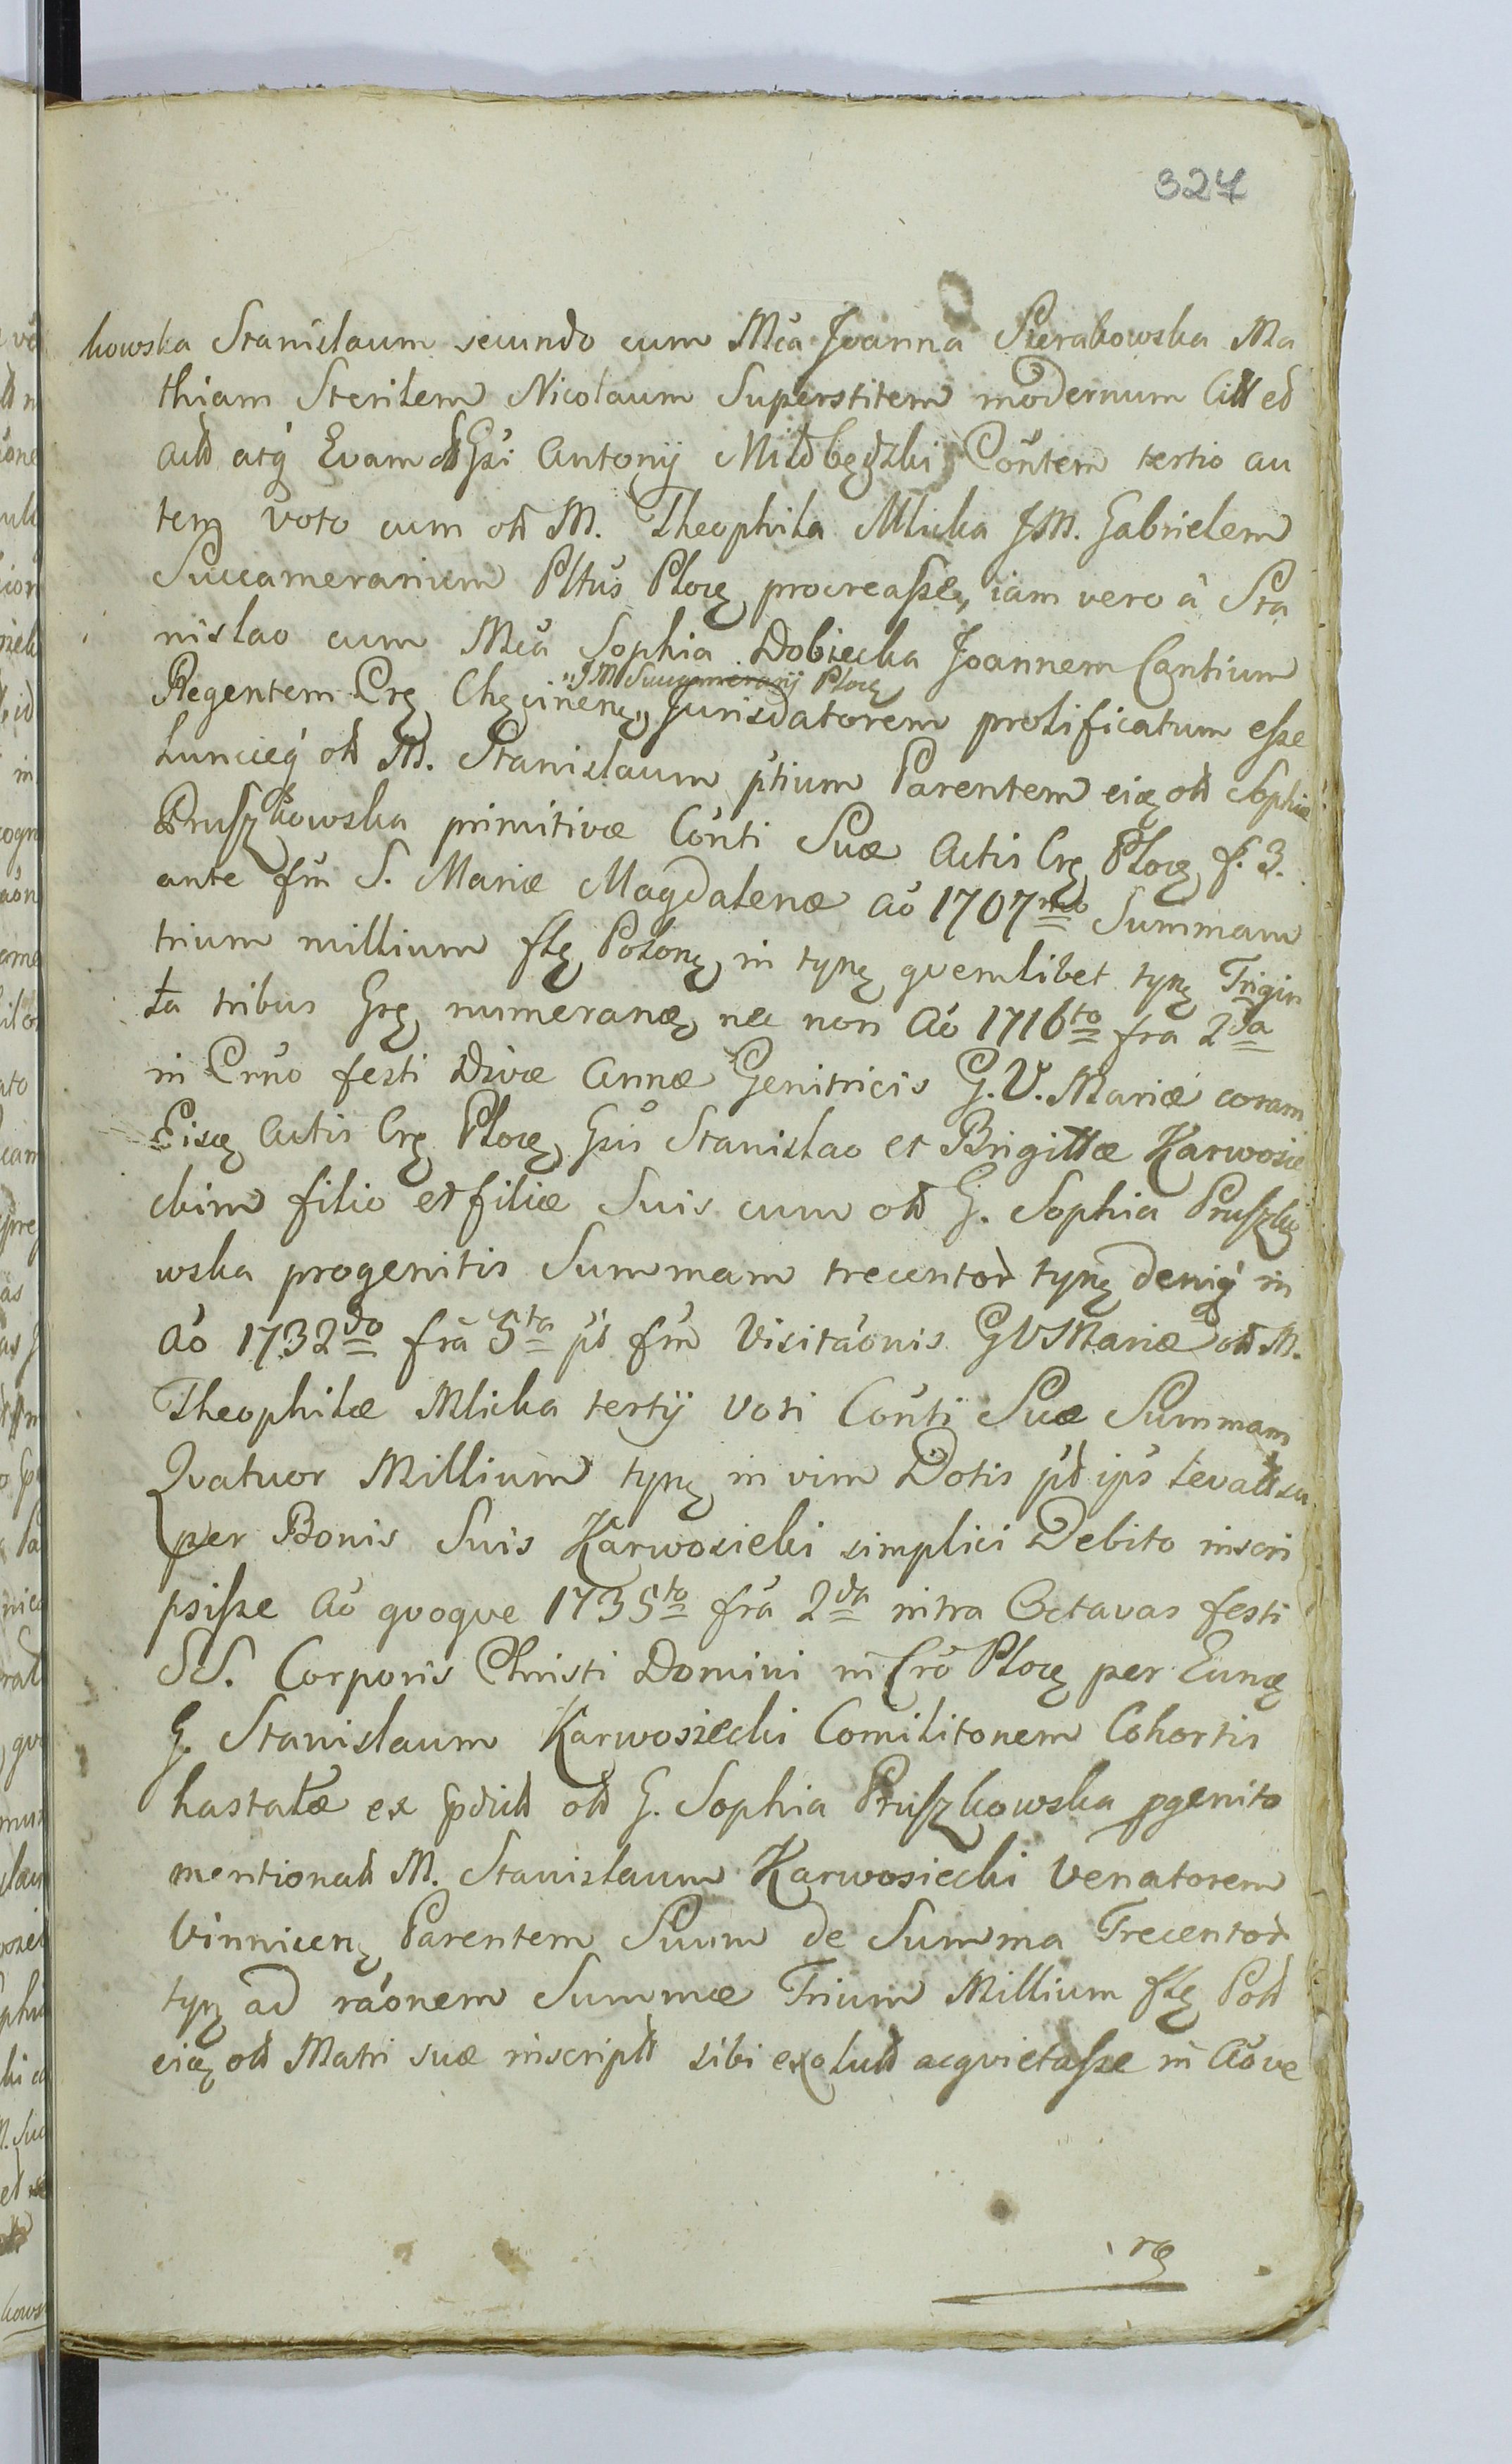 327
kowska Stanislaum secundo cum Mcã Joanna Sierakowska Ma
thiam Sterilem Nicolaum Superstitem modernum
atq́ Evam Gsi Antonij Niedbędzki Cońtem tertio au
tem voto cum M. Theophila Mlicka JM. Gabrielem
Succamerarium Pltús Plocę procreaſse, iam vero â Sta
nislao cum Mcã Sophia Dobiecka Joannem Cantium
"JM Succamerarij Plocę
Regentem Crę Chęcinenę,, Jurisdatorem prolificatum eſse
huncieq́ M. Stanislaum ṕtium Parentem eię Sophiæ
Pruſzkowska primitivæ Cońti Suæ Actis Crę Plocę f. 3.
ante fm̃ S. Mariæ Magdalenæ Aõ 1707mo Summam
trium millium flę Polonę in typę qvemlibet typę Trigin
ta tribus Grę numeranę nec non Aõ 1716to frã 2da
in Crño festi Divæ Annæ Genitricis G. V. Mariæ coram
Eisę Actis Crę Plocę Gsis Stanislao et Brigittæ Karwosie
ckim filio et filiæ Suis cum G. Sophia Pruſzko
wska progenitis Summam trecentor typę deniq́ in
Aõ 1732do frã 5ta ṕt fm̃ Visitaõnis GVMariæ M.
Theophilæ Mlicka tertij Voti Cońti Suæ Summam
Qvatuor Millium typę in vim Dotis
per Bonis Suis Karwosieki simplici Debito inscri
psiſse Aõ qvoqve 1735to frã 2da intra Octavas festi
SS. Corporis Christi Domini in Crõ Plocę per Eunę
G. Stanislaum Karwosiecki Comilitonem Cohortis
hastatæ ex G. Sophia Pruſzkowska pgenito
M. Stanislaum Karwosiecki Venatorem
Vinnicenę Parentem Suum de Summa Trecentor
typę ad raõnem Summæ Trium Millium flę Pol
eię Matri suæ sibi acqvietaſse in Aõve
rę